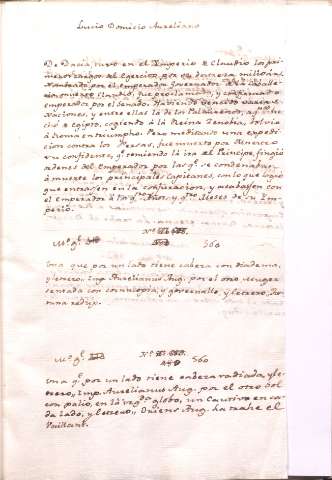 Lucio Domicio Aureliano
De Dacia, tuvo en el Imperio de Claudio los pri
meros cargos del Exercito por su destreza militar.
Nombrado por el emperador Governador de la
Claudio, fue proclamado, y confirmado
emperador por el Senado. Habiendo vencido varias
Naciones, y entre ellas la de los Palmirenos,
à Egipto, cogiendo à la Reina Zenobia, volvió
à Roma en triumpho. Pero meditando una expedi
cion contra los Persas, fue muerto por
su confidente, q temiendo la ira del Principe, fingió
ordenes del Emperador por las q.e se condenaban
à muerte los principales Capitanes, con lo que logró
que entrasen en la conjuracion, y acabasen con
el emperador à los
perio.
560
Una que por un lado tiene cabeza con diadema,
y letrero, Imp. Aurelianus Aug. por el otro muger
sentada con cornucopia, y y letrero, For
tuna redux.
560
Una q.e por un lado tiene cabeza radiada, y le
trero, Imp. Aurelianus Aug. por el otro Sol
con palio, en la globo, un Cautivo en ca
da lado, y letrero, Oriens Aug. ha trahe el
Vaillant.